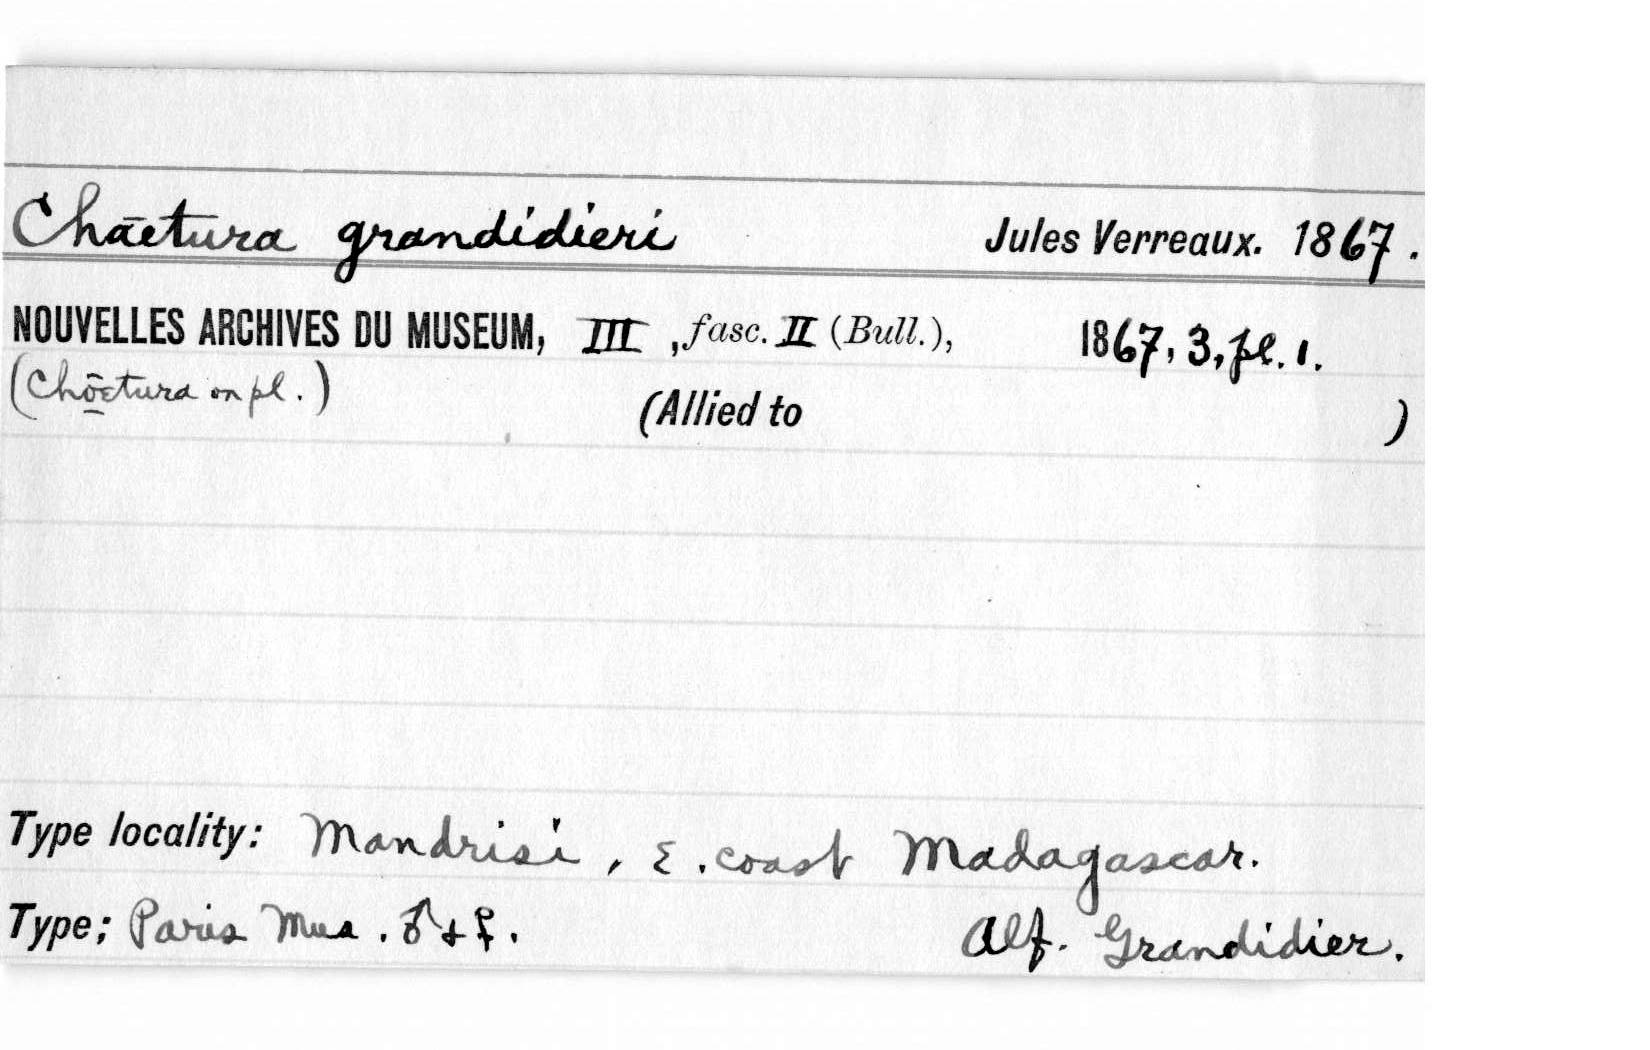 Chāetura grandidieri Jules Verreaux. 1867.
NOUVELLES ARCHIVES DU MUSEUM, III, fasc. II (Bull.), 1867, 3, pl. 1.
(Chōetura on pl.)
(Allied to )
Type locality: Mandrisi, E. coast Madagascar.
Type; Paris Mus. ♂ + ♀. Alf. Grandidier.